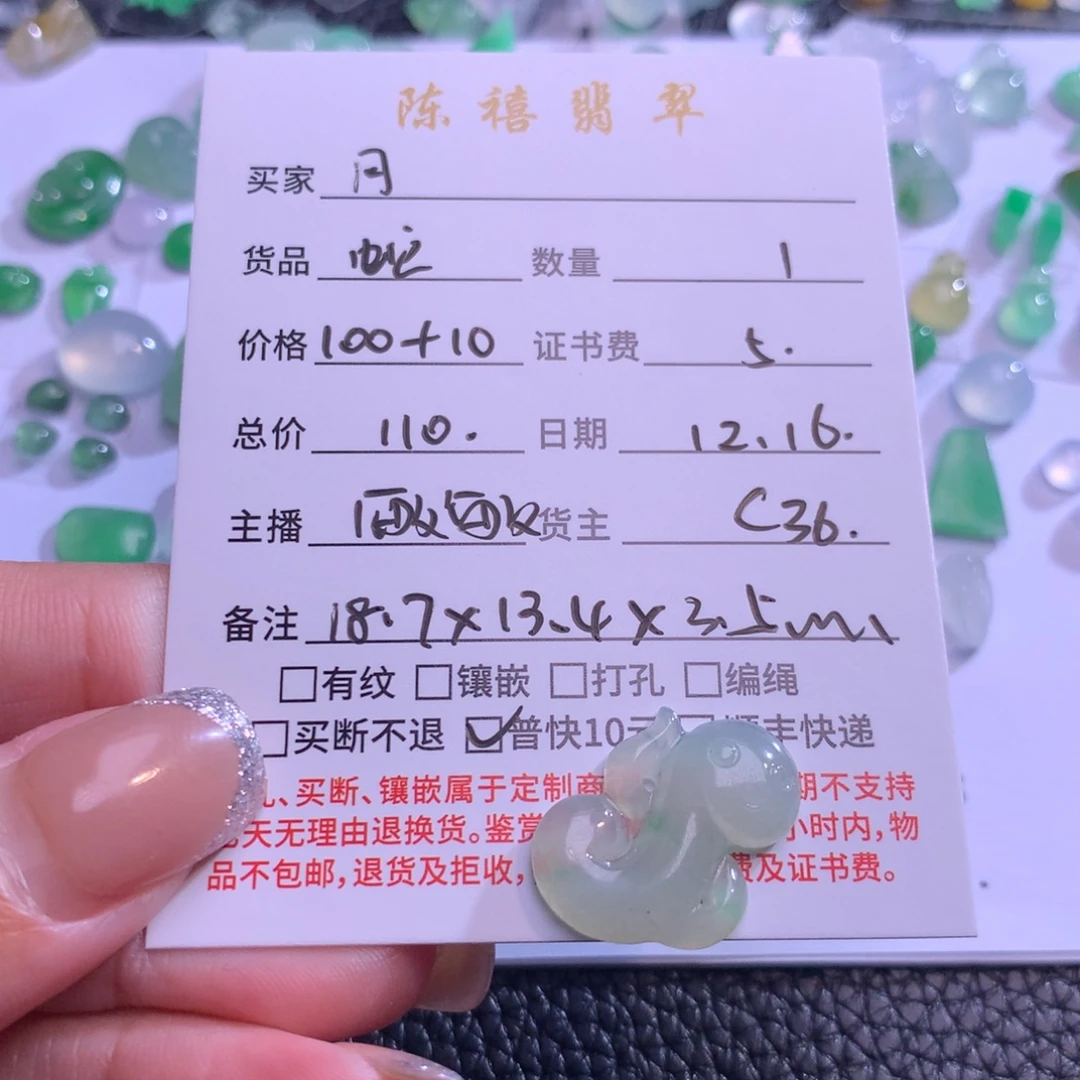 陈禧翡翠
买家 月
货品 蛇 数量 1
价格 100+10 证书费 5.
总价 110. 日期 12.16.
主播 货主 C36.
备注 18.7×13.4×3.5mm
□有纹 □镶嵌 □打孔 □编绳
□买断不退 ☑普快10天 □顺丰快递
、买断、镶嵌属于定制商 期不支持
天无理由退换货。鉴赏 小时内，物
品不包邮，退货及拒收， 费及证书费。